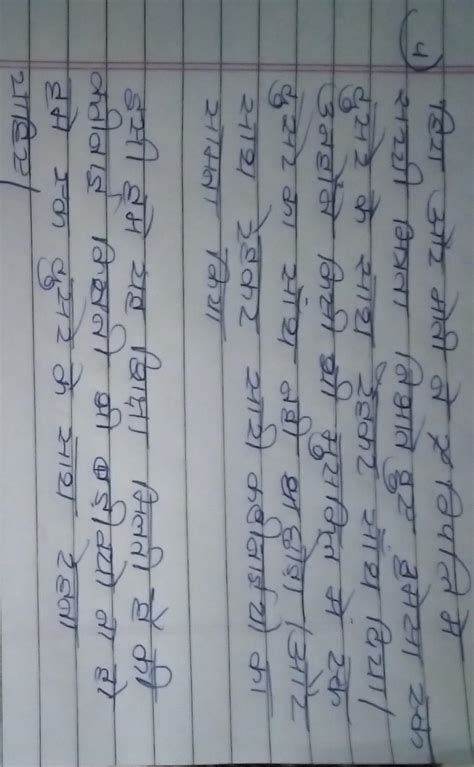 4)
हिरा और मोती ने र विपति मे
सच्ची मित्रता निभाते हुए हमेसा एक
दुसरे के साथ रहकर साँथ दिया।
उनहोंने किसी भी मुसकित में एक
दुसरे का सांथ नही था छोडा। और
साथ रहकर सारी कठीनाईयो का
सामना किया
इससे हमे यह शिक्षा मिलती है की
कठीनाई कितनी भी बडी क्यो ना हो
हमे एक दुसरे के साथ रहना
चाहिए।